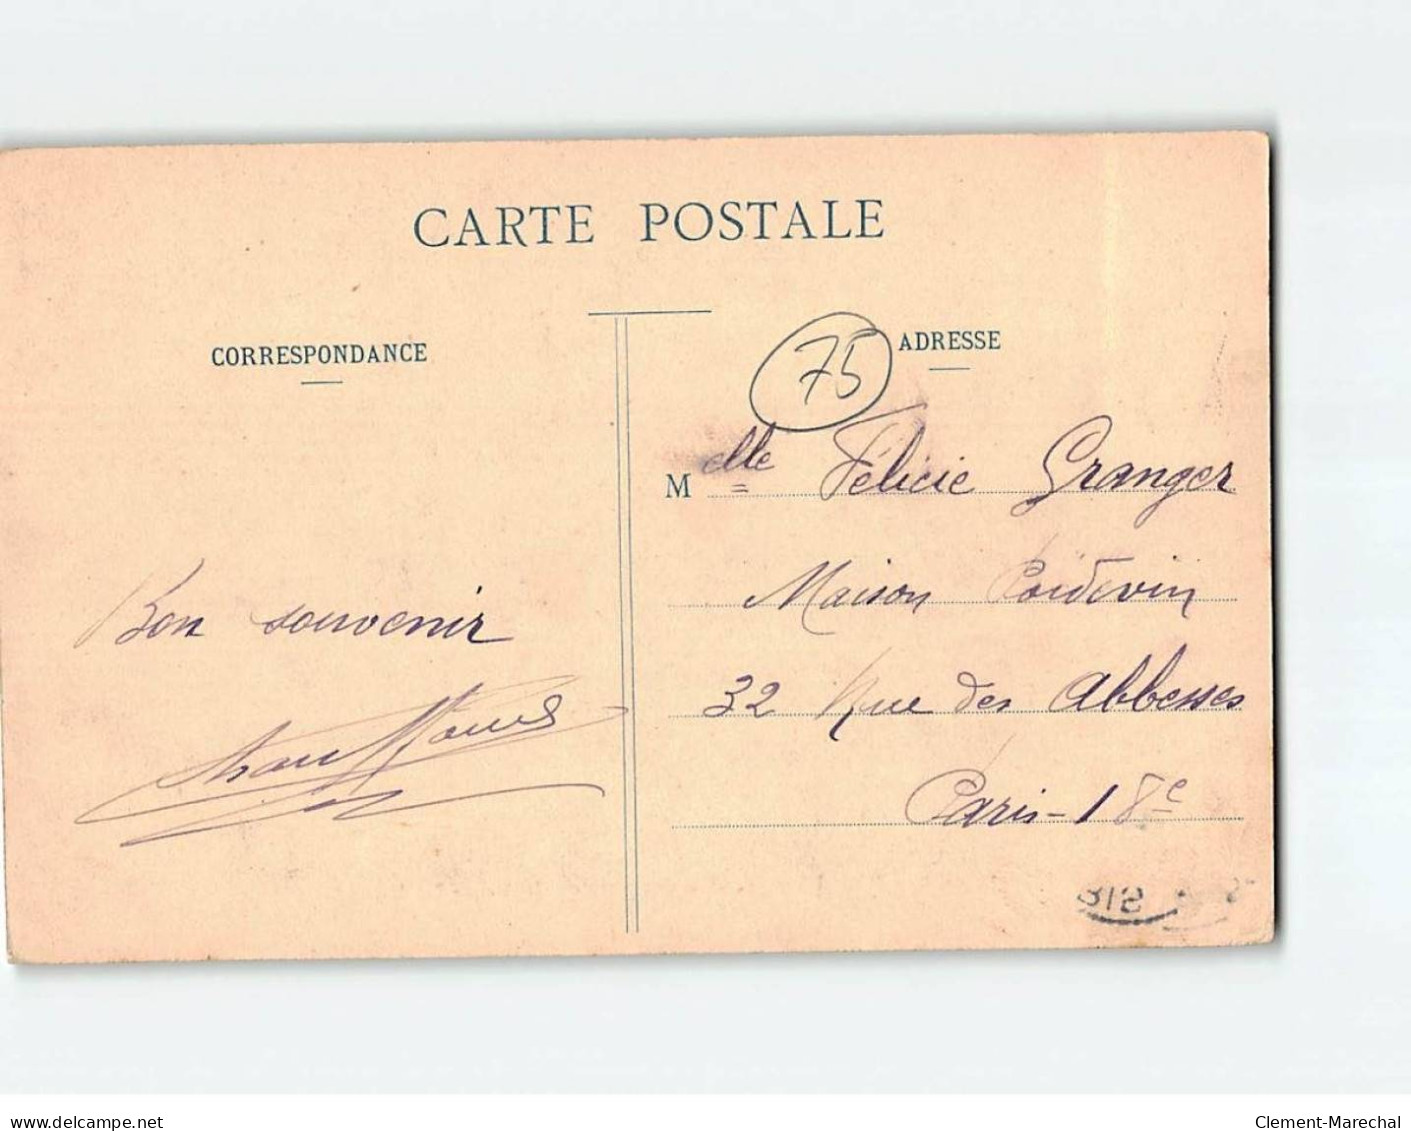 CARTE POSTALE
CORRESPONDANCE
ADRESSE
75
Bon souvenir
Melle Félicie Granger
Maison Poidevin
32 Rue des Abbesses
Paris-18e
www.delcampe.net
Clement-Marechal